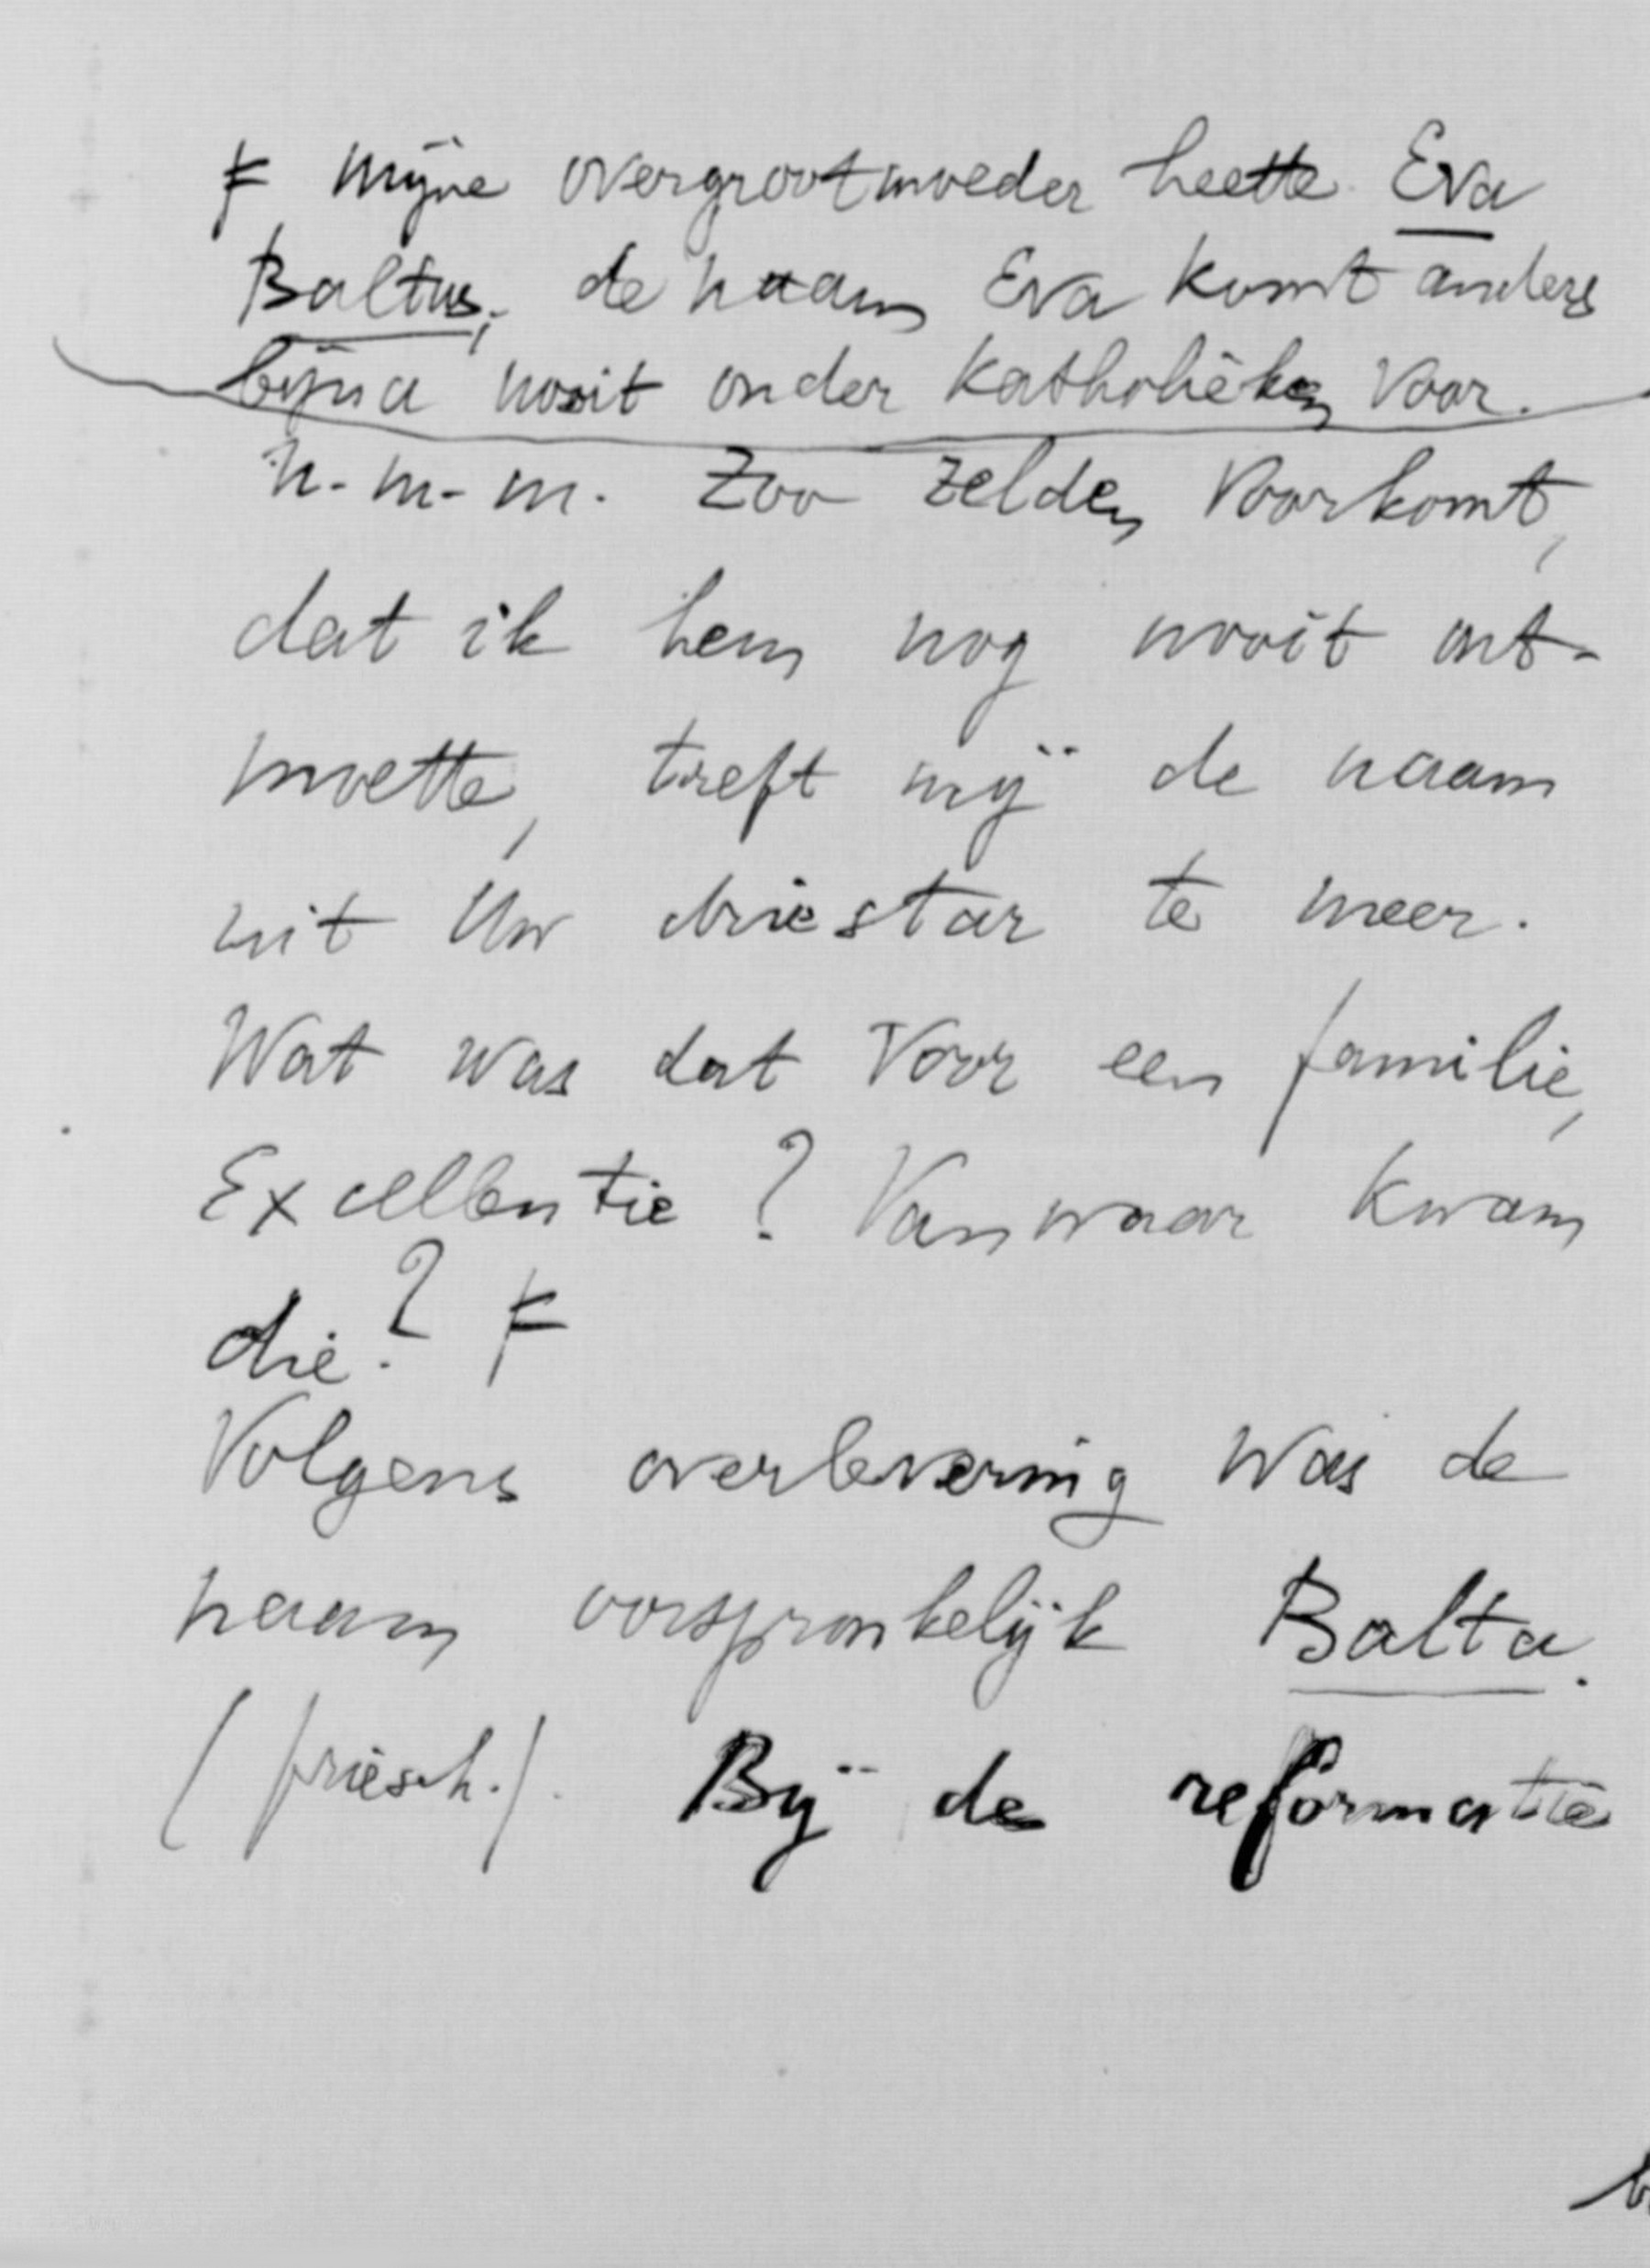 ≠ Mijne overgrootmoeder heette Eva
Baltus; de naam Eva komt anders
bijna nooit onder Katholieken voor.
n.-m-m. Zoo zelden voorkomt,
dat ik hem nog nooit ont-
moette, treft mij de naam
uit Uw driestar te meer.
Wat was dat voor een familie,
Excellentie? Vanwaar kwam
die? ≠
Volgens overlevering was de
naam oorspronkelijk Balta.
(friesch.). Bij de reformatie